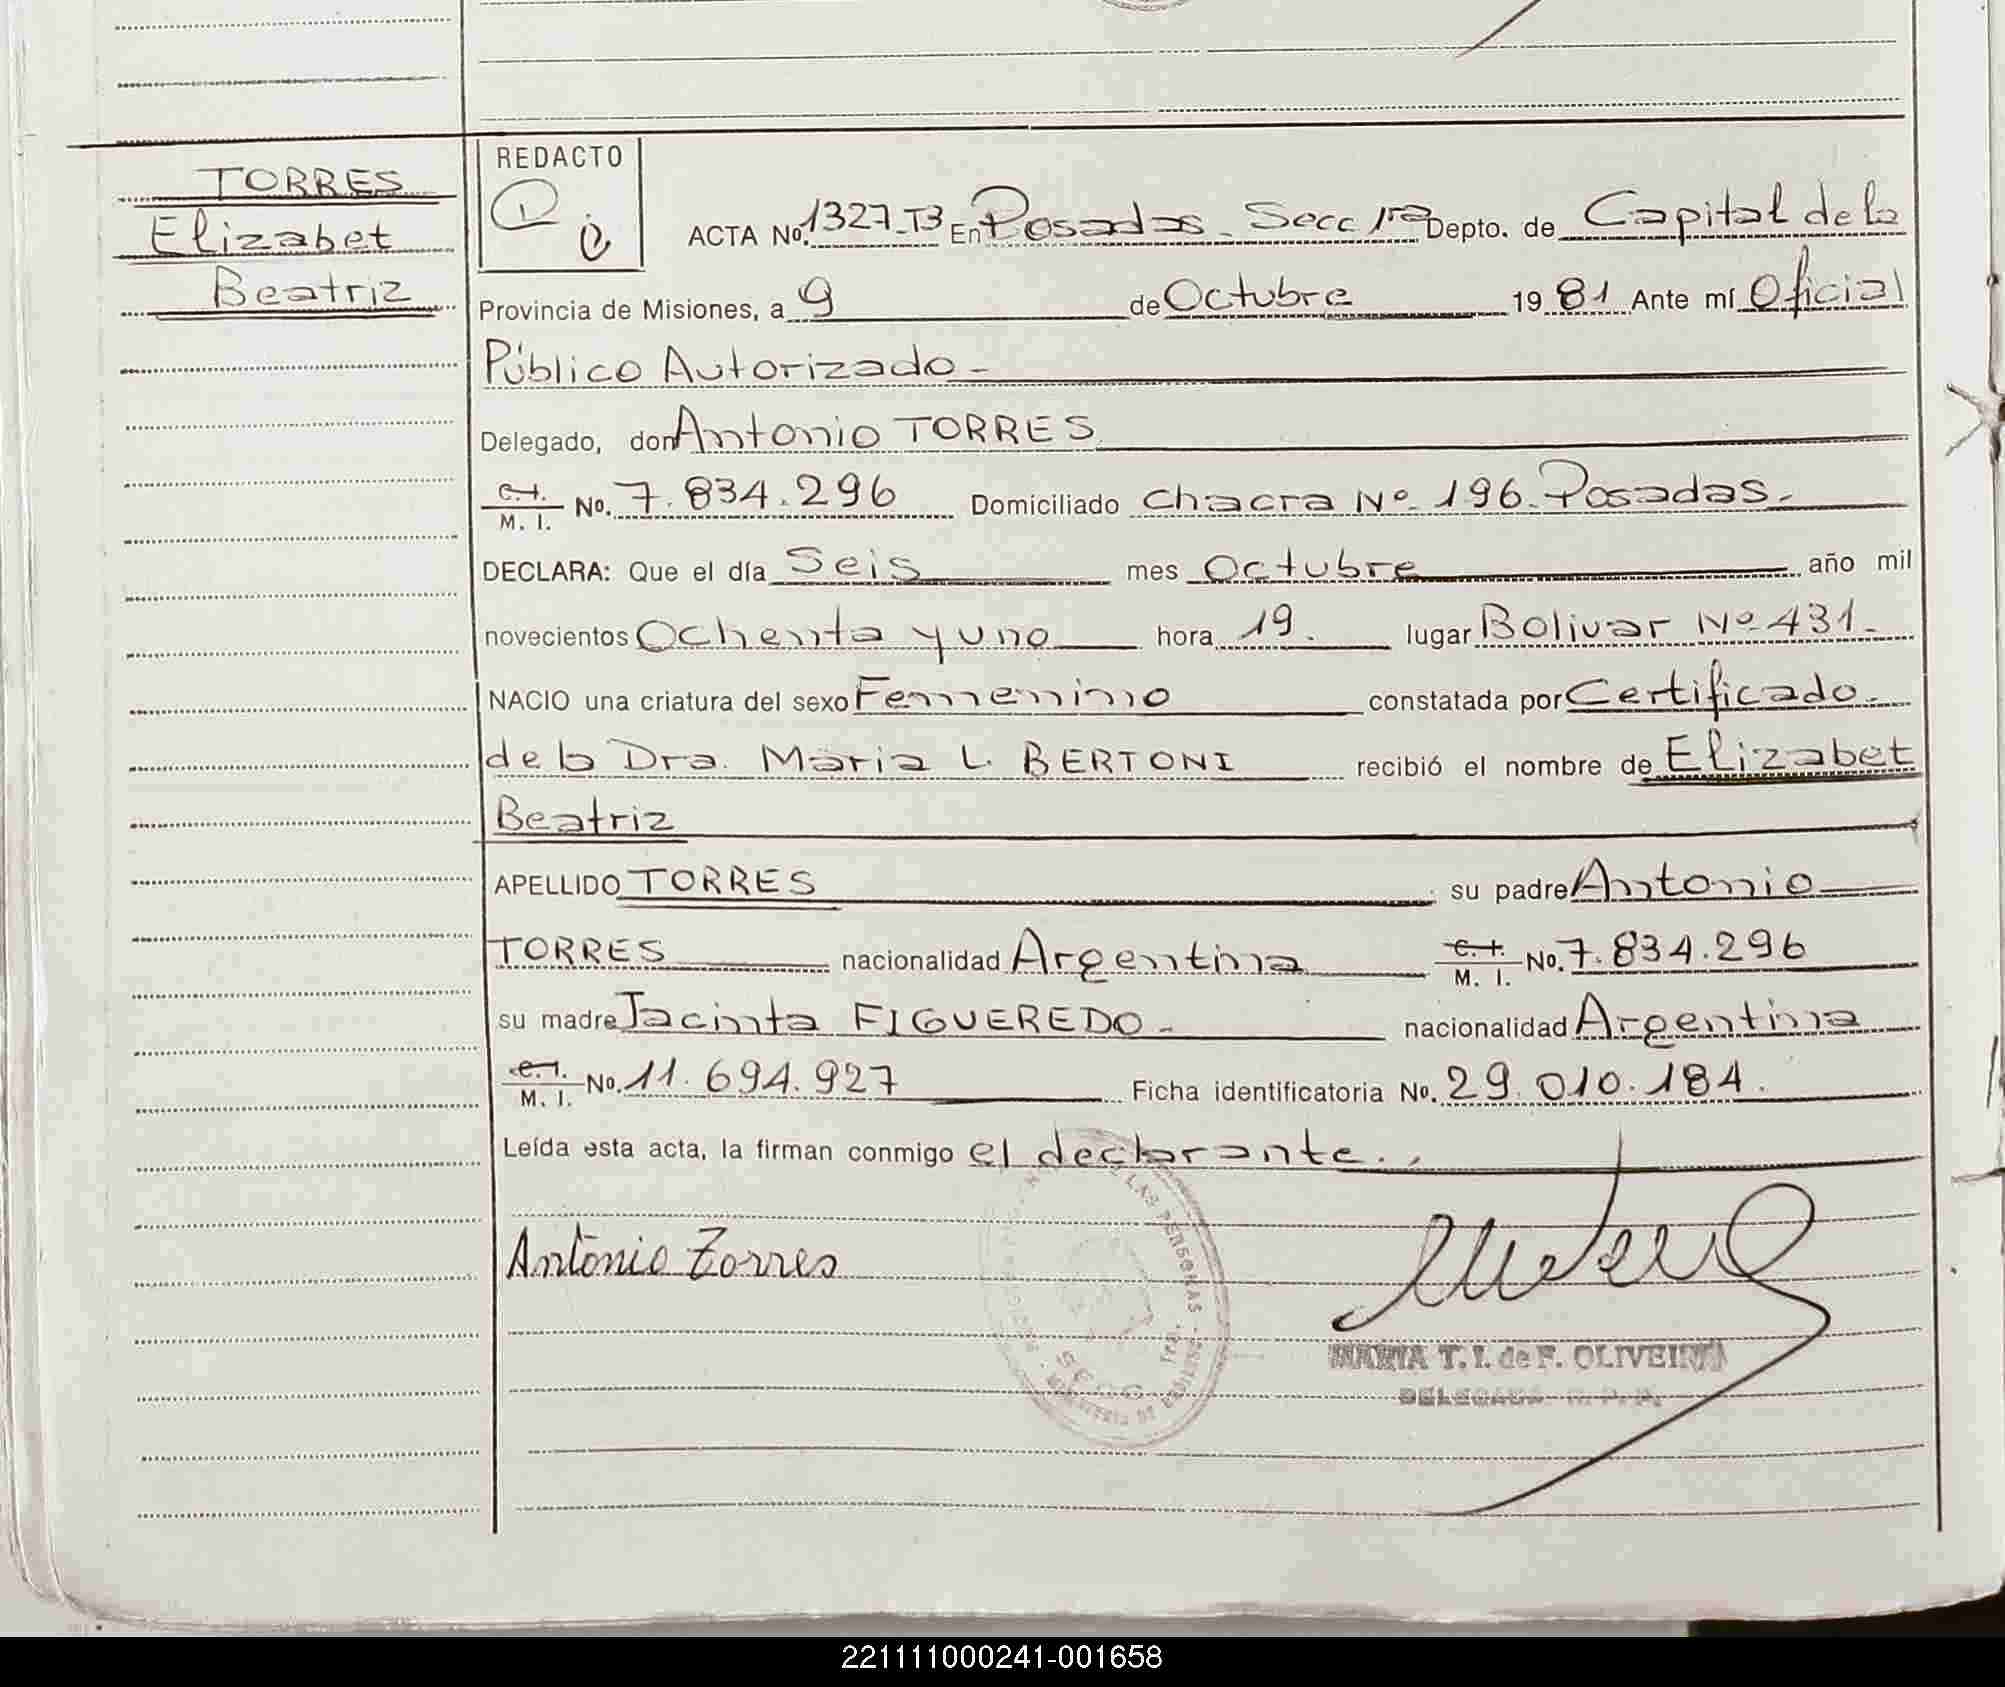 TORRES
Elizabet
Beatriz
REDACTO
ACTA No. 1327-T3 En Posadas - Secc 1ra Depto. de Capital de la
Provincia de Misiones, a 9 de Octubre 19 81 Ante mí Oficial
Público Autorizado -
Delegado, don Antonio TORRES
C.I. M. I. No. 7.834.296 Domiciliado Chacra Nº 196. Posadas.
DECLARA: Que el día Seis mes Octubre año mil
novecientos Ochenta y uno hora 19. lugar Bolivar Nº 431.
NACIO una criatura del sexo Femenino constatada por Certificado
de la Dra. Maria L. BERTONI recibió el nombre de Elizabet
Beatriz
APELLIDO TORRES su padre Antonio
TORRES nacionalidad Argentina C.I. M. I. No. 7.834.296
su madre Jacinta FIGUEREDO - nacionalidad Argentina
C.I. M. I. No. 11.694.927 Ficha identificatoria No. 29.010.184.
Leída esta acta, la firman conmigo el declarante.
LAS PERSONAS
Antonio Torres
SECC. 1ra.
MARIA T. I. de F. OLIVEIRA
DELEGADA R. P. P.
221111000241-001658